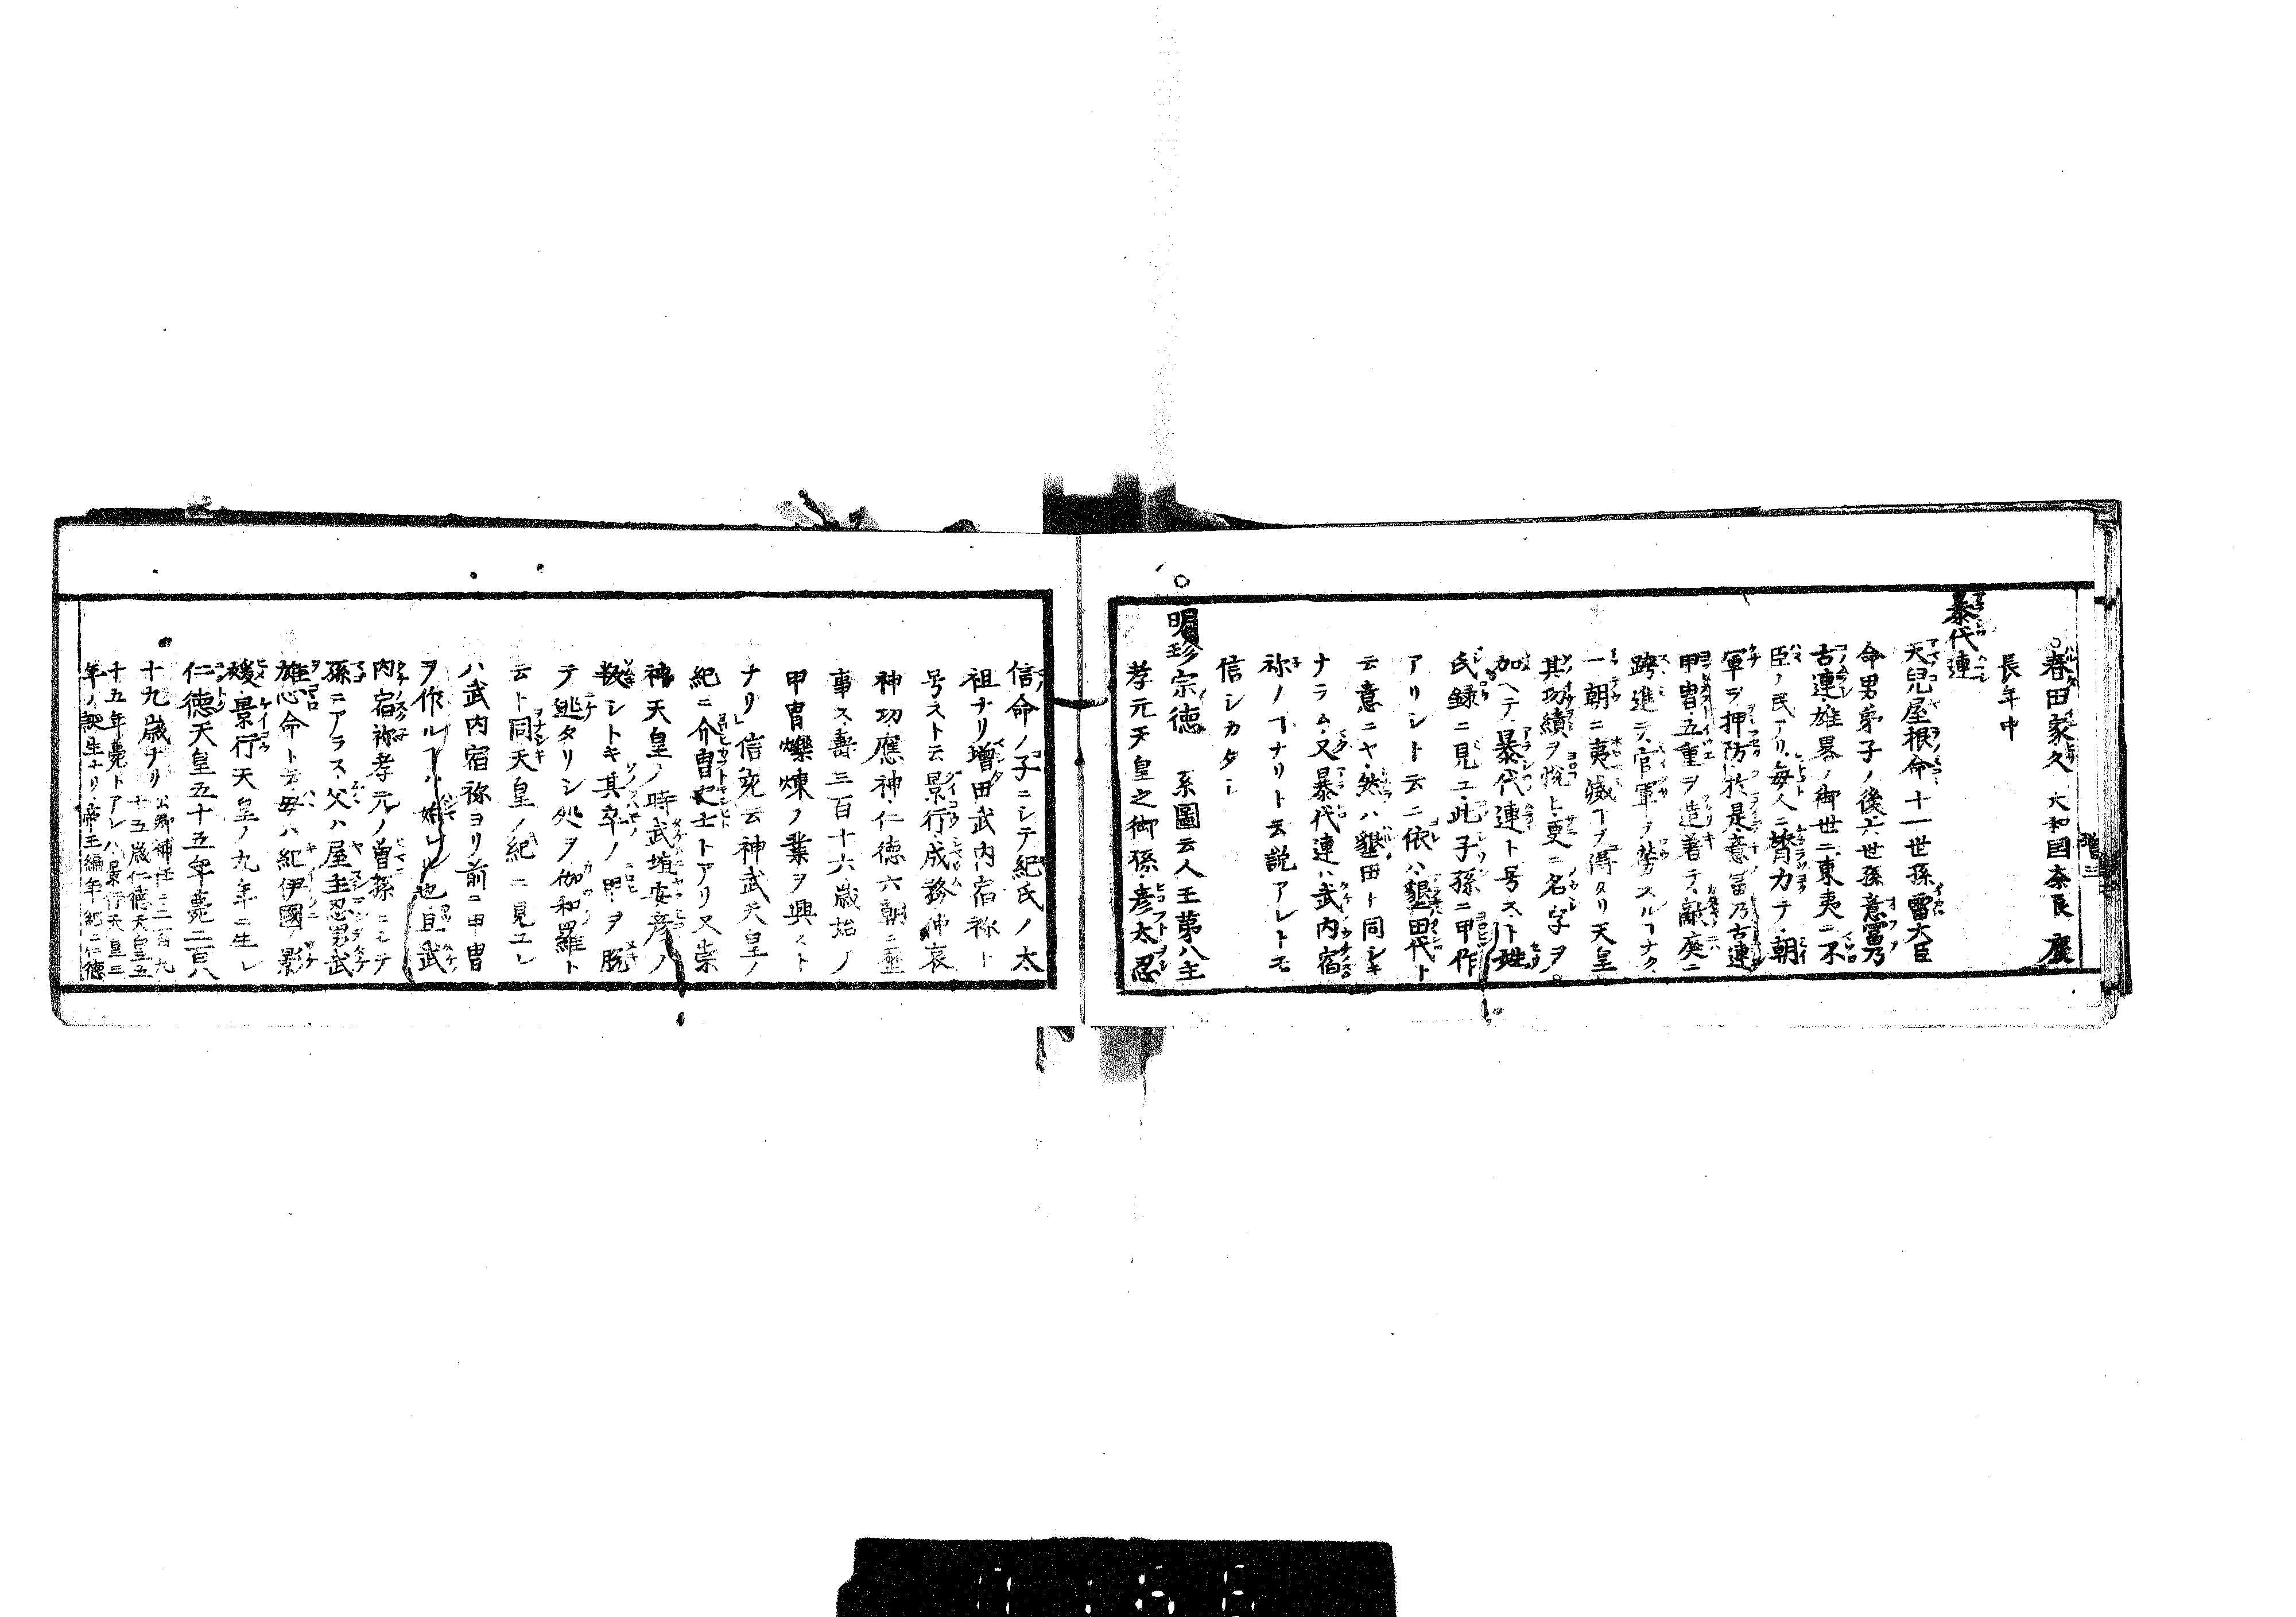 ○春田家久 大和國奈良 應
長年中
暴代連
天兒屋根命十一世孫雷大臣
命男弟子ノ後六世孫意富乃
古連雄畧ノ御世ニ東夷ニ不
臣ノ民アリ毎人ニ膂力テ朝
軍ヲ押防於是意富乃古連
甲冑五重ヲ造著テ敵庭ニ
跨進テ官軍ヲ勞スルヿナク
一朝ニ夷滅ヿヲ得タリ天皇
其功績ヲ悅ヒ更ニ名字ヲ
加ヘテ暴代連ト号ス下姓
氏録ニ見ユ此子孫ニ甲作
アリシト云ニ依ハ墾田代ト
云意ニヤ然ハ墾田ト同シキ
ナラム又暴代連ハ武内宿
祢ノヿナリト云説アレトモ
信シカタシ
○明珍宗徳 系圖云人王第八主
孝元天皇之御孫彦太忍
信命ノ子ニシテ紀氏ノ太
祖ナリ増田武内宿祢ト
号スト云景行成務仲哀
神功應神仁徳六朝ニ歴
事ス壽三百十六歳始ノ
甲冑爍煉ノ業ヲ興スト
ナリ信充云神武天皇ノ
紀ニ介冑史士トアリ又崇
神天皇ノ時武埴安彦ノ
叛シトキ其卒ノ甲ヲ脫
テ逃タリシ処ヲ伽和羅ト
云ト同天皇ノ紀ニ見ユレ
ハ武内宿祢ヨリ前ニ甲冑
ヲ作ルヿハ始レル也且武
内宿祢孝元ノ曽孫ニシテ
孫ニアラス父ハ屋主忍男武
雄心命ト云母ハ紀伊國ノ影
媛景行天皇ノ九年ニ生レ
仁徳天皇五十五年薨二百八
十九歳ナリ 公卿補任ニ二百九
十五歳仁徳天皇五
十五年薨トアレハ景行天皇三
年ノ誕生ナリ帝王編年紀ニ仁徳